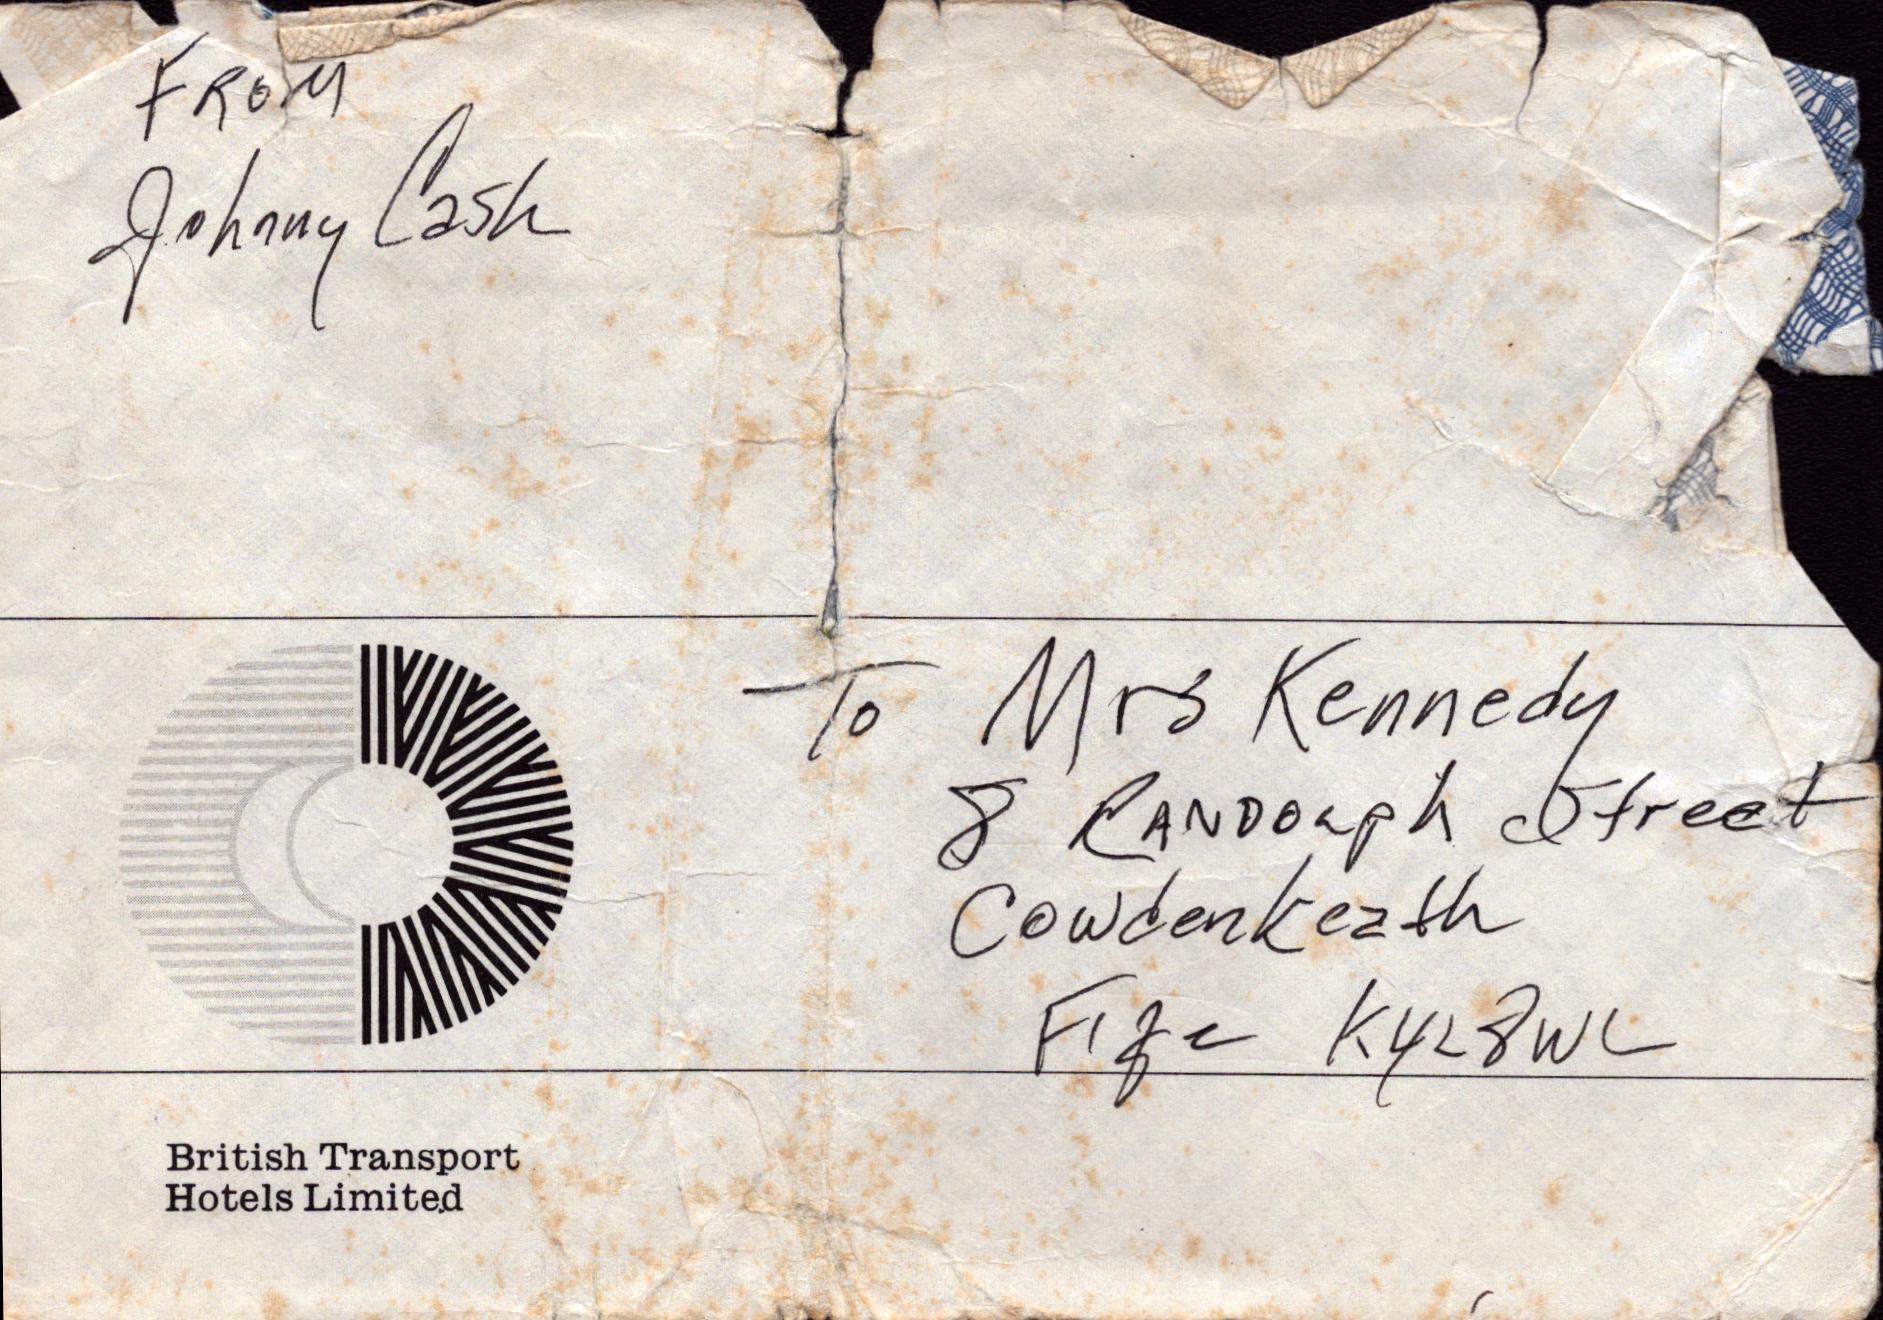 FROM
Johnny Cash
To Mrs Kennedy
8 RANDOLph Street
Cowdenkeath
Fife KYL8WL
British Transport
Hotels Limited